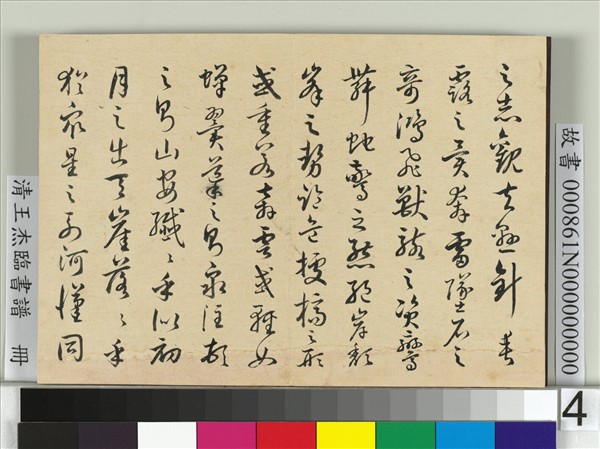 之志觀夫懸針垂
露之異奔雷墜石之
奇鴻飛獸駭之資鸞
舞蛇驚之態絕岸頹
峯之勢臨危據槁之形
或重若崩雲或輕如
蟬翼導之則泉注頓
之則山安纖〻乎似初
月之出天崖落〻乎
猶眾星之列河漢同
故書 000861N000000000
清王杰臨書譜 冊
4